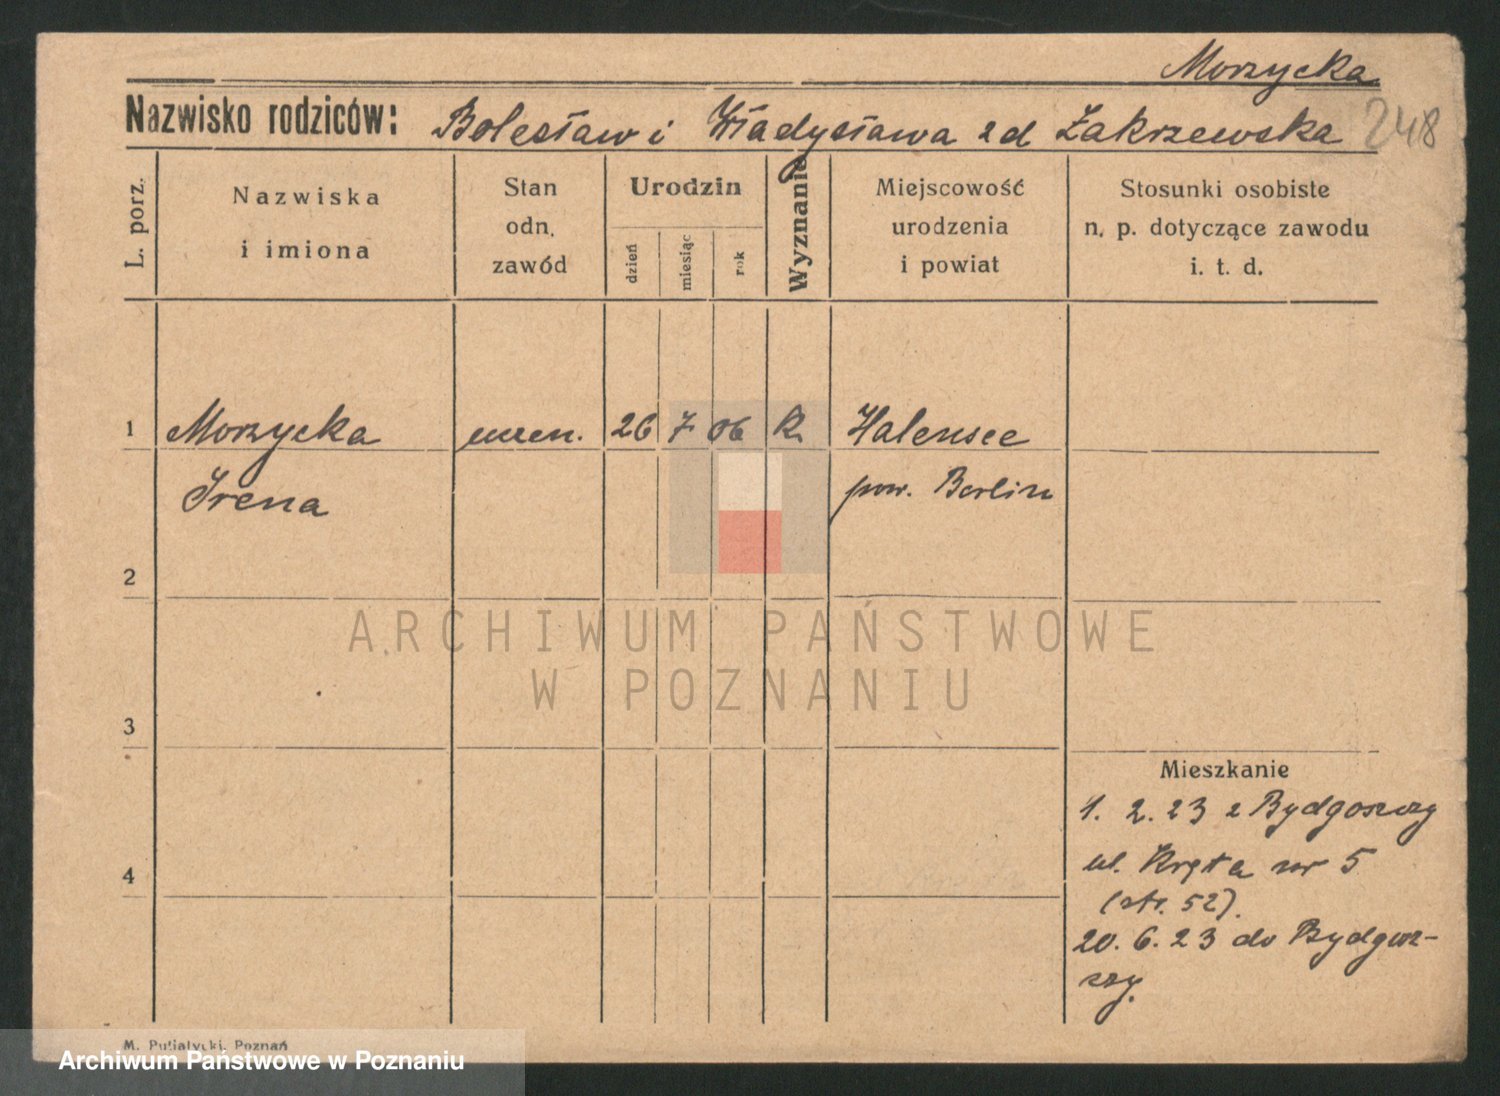 Morzycka
248
Nazwisko rodziców: Bolesław i Władysława zd Zakrzewska
L. porz.
Nazwiska
i imiona
Stan
odn.
zawód
Urodzin
dzień
miesiąc
rok
Wyznanie
Miejscowość
urodzenia
i powiat
Stosunki osobiste
n. p. dotyczące zawodu
i. t. d.
1 Morzycka uczen. 26 7 06 k. Halensee
Irena pow. Berlin
2
ARCHIWUM PAŃSTWOWE
W POZNANIU
3
Mieszkanie
1. 2. 23 z Bydgoszczy
4
ul. Kręta nr 5
(str. 52).
20. 6. 23 do Bydgosz-
czy.
M. Putiatycki, Poznań
Archiwum Państwowe w Poznaniu